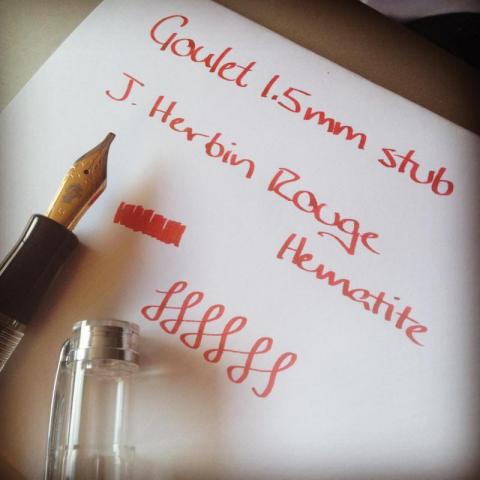 Goulet 1.5mm stub
J. Herbin Rouge
Hematite